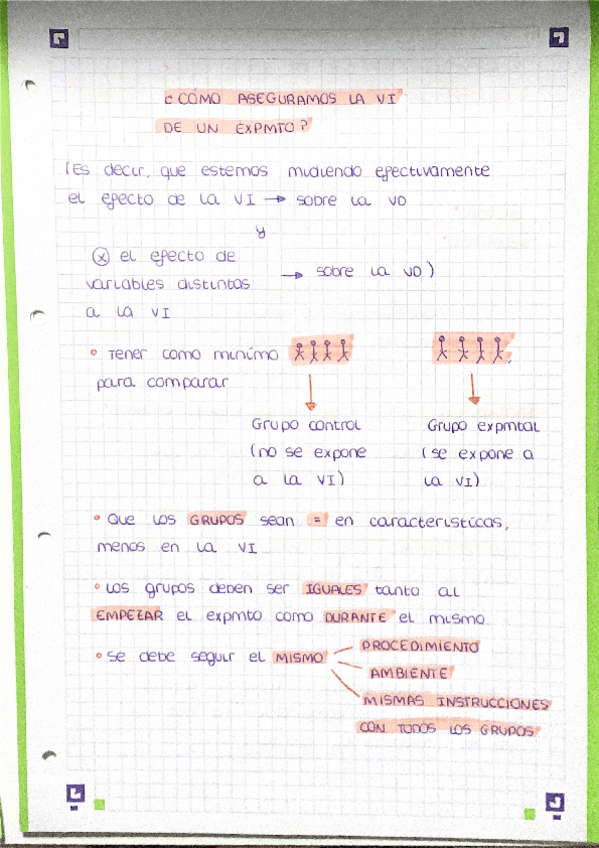 ¿CÓMO ASEGURAMOS LA VI
DE UN EXPMTO?
(Es decir, que estemos midiendo efectivamente
el efecto de la VI → sobre la VD
y
ⓧ el efecto de
variables distintas → sobre la VD)
a la VI
• Tener como mínimo
para comparar
Grupo control
(no se expone
a la VI)
Grupo expmtal
(se expone a
la VI)
• Que los GRUPOS sean = en características,
menos en la VI
• Los grupos deben ser IGUALES tanto al
EMPEZAR el expmto como DURANTE el mismo
• Se debe seguir el MISMO
PROCEDIMIENTO
AMBIENTE
MISMAS INSTRUCCIONES
CON TODOS LOS GRUPOS